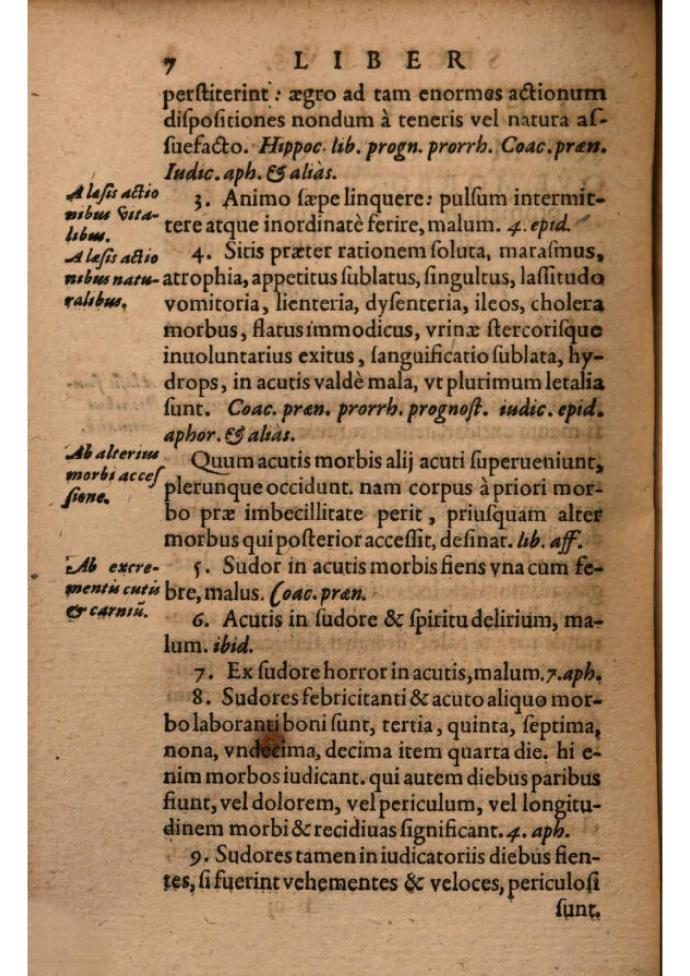 7 LIBER
perſtiterint: ægro ad tam enormes actionum
diſpoſitiones nondum à teneris vel natura aſ-
ſuefacto. Hippoc. lib. progn. prorrh. Coac. præn.
Iudic. aph. & aliàs.
A læſis actio
nibus Vita-
libus.
3. Animo ſæpe linquere: pulſum intermit-
tere atque inordinatè ferire, malum. 4. epid.
A læſis actio
nibus natu-
ralibus.
4. Sitis præter rationem ſoluta, maraſmus,
atrophia, appetitus ſublatus, ſingultus, laſſitudo
vomitoria, lienteria, dyſenteria, ileos, cholera
morbus, flatus immodicus, vrinæ ſtercoriſque
inuoluntarius exitus, ſanguificatio ſublata, hy-
drops, in acutis valdè mala, vt plurimum letalia
ſunt. Coac. præn. prorrh. prognoſt. iudic. epid.
aphor. & aliàs.
Ab alterius
morbi acceſ
ſione.
Quum acutis morbis alij acuti ſuperueniunt,
plerunque occidunt. nam corpus à priori mor-
bo præ imbecillitate perit, priuſquam alter
morbus qui poſterior acceſſit, deſinat. lib. aff.
Ab excre-
mentis cutis
& carniū.
5. Sudor in acutis morbis fiens vna cum fe-
bre, malus. Coac. præn.
6. Acutis in ſudore & ſpiritu delirium, ma-
lum. ibid.
7. Ex ſudore horror in acutis, malum. 7. aph.
8. Sudores febricitanti & acuto aliquo mor-
bo laboranti boni ſunt, tertia, quinta, ſeptima,
nona, vndecima, decima item quarta die. hi e-
nim morbos iudicant. qui autem diebus paribus
fiunt, vel dolorem, vel periculum, vel longitu-
dinem morbi & recidiuas ſignificant. 4. aph.
9. Sudores tamen in iudicatoriis diebus fien-
tes, ſi fuerint vehementes & veloces, periculoſi
ſunt.